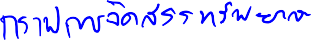 กราฟการจัดสรรทรัพยากร